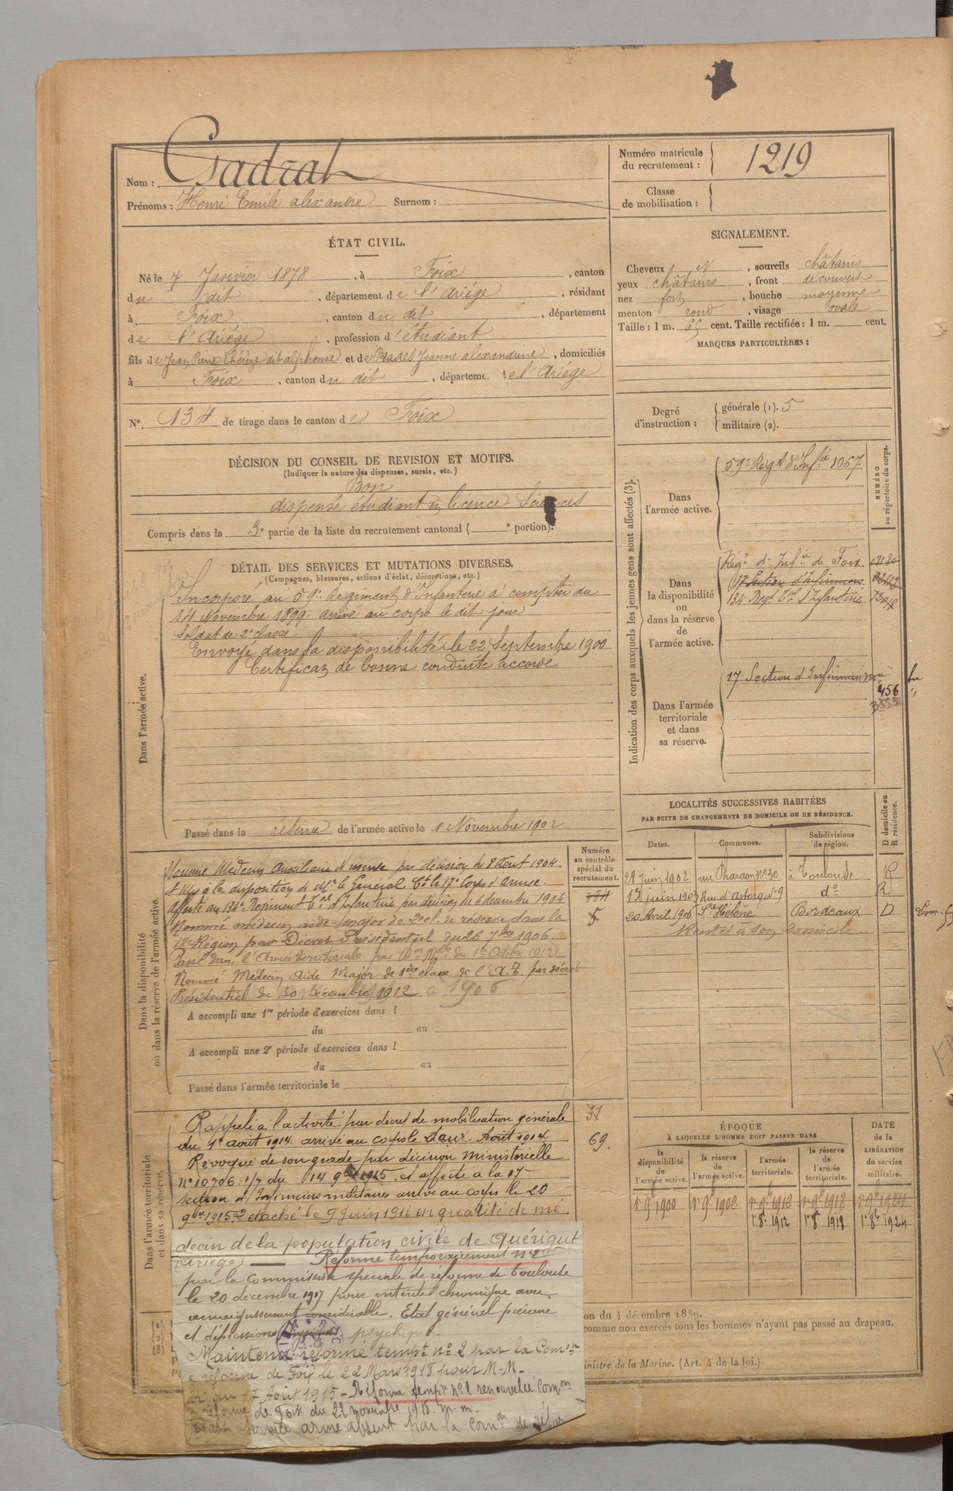 Nom : Cadzal
Prénoms : Henri Emile alexandre Surnom :
Numéro matricule du recrutement : 1219
Classe de mobilisation :
ÉTAT CIVIL.
Né le 7 Janvier 1878, à Foix, canton
du dit, département de l'Ariège, résidant
à Foix, canton du dit, département
de l'Ariège, profession d'étudiant
fils de Jean Pierre dit alphonse et de Prades Jeanne alexandrine, domiciliés
à Foix, canton du dit, départeme de l'Ariège
N° 134 de tirage dans le canton de Foix
SIGNALEMENT.
Cheveux N, sourcils châtains
yeux châtains, front découvert
nez fort, bouche moyenne
menton rond, visage ovale
Taille : 1 m. 65 cent. Taille rectifiée : 1 m. cent.
MARQUES PARTICULIÈRES :
Degré d'instruction : générale (1). 5
militaire (2).
DÉCISION DU CONSEIL DE REVISION ET MOTIFS.
(Indiquer la nature des dispenses, sursis, etc.)
Bon
dispensé étudiant en licence Sciences
Compris dans la 3e partie de la liste du recrutement cantonal ( e portion).
DÉTAIL DES SERVICES ET MUTATIONS DIVERSES.
(Campagnes, blessures, actions d'éclat, décorations, etc.)
Dans l'armée active.
Incorporé au 59e Régiment d'Infanterie à compter du
14 Novembre 1899 arrivé au corps le dit jour
Soldat de 2e classe
Envoyé dans la disponibilité le 22 Septembre 1900
Certificat de bonne conduite accordé
Passé dans la réserve de l'armée active le 1 Novembre 1902
Indication des corps auxquels les jeunes gens sont affectés (3).
NUMÉRO au répertoire du corps.
Dans l'armée active.
59e Régt d'Infie 1067
Dans la disponibilité ou dans la réserve de l'armée active.
Régt d'Infie de Foix
17 Section d'infirmiers
134 Regt d'Infanterie
Dans l'armée territoriale et dans sa réserve.
17 Section d'Infirmiers
456
LOCALITÉS SUCCESSIVES HABITÉES
PAR SUITE DE CHANGEMENTS DE DOMICILE OU DE RÉSIDENCE.
Dates. Communes. Subdivisions de région. D domicile ou R résidence.
24 juin 1902 rue Pharaon No 30 à Toulouse R
1 juin 1903 Rue d'Astorg 9 do R
20 Avril 1906 Ste Hélène Bordeaux D
Numéro au contrôle spécial du recrutement.
Dans la disponibilité ou dans la réserve de l'armée active.
Nommé Médecin Auxiliaire de réserve par décision du 8 Aout 1904
et Mis à la disposition de Mr le Général Ct le 17e Corps d'armée.
Affecté au 134e Régiment d'Infanterie par décision du 6 décembre 1904
Nommé médecin aide major de 2e cl. de réserve dans la
18e Région par Décret Présidentiel du 26 7bre 1906
Passé dans l'Armée territoriale
Nommé Médecin Aide Major de 1ère classe de l'A.T. par décret
Présidentiel du 30 Décembre 1912
A accompli une 1re période d'exercices dans l
du au
A accompli une 2e période d'exercices dans l
du au
Passé dans l'armée territoriale le
Dans l'armée territoriale et dans sa réserve.
Rappelé à l'activité par décret de mobilisation générale
du 1er août 1914 arrivé au corps le Août 1914
Révoqué de son grade par décision ministérielle
No 10706 1/7 du 14 9bre 1915 et affecté à la 17
section d'Infirmiers militaires arrivé au corps le 20
9bre 1915 détaché le 9 juin 1916 en qualité de mé
decin de la population civile de Quérigut
(Ariège) Réformé temporairement No 2
par la Commission spéciale de réforme de Toulouse
le 20 décembre 1917 pour entérite chronique avec
amaigrissement considérable. Etat général précaire
et dépression psychique.
Maintenu réformé tempt No 2 par la Comon
de réforme de Foix le 22 Mars 1918 pour M.M.
du 17 Août 1915 - Réforme tempre No 2 renouvelée Comon
réforme de Foix du 22 novembre 1918. m. m.
service armé absent par la Comon de réforme
31
69
ÉPOQUE
À LAQUELLE L'HOMME DOIT PASSER DANS
la disponibilité de l'armée active. la réserve de l'armée active. l'armée territoriale. la réserve de l'armée territoriale.
DATE de la LIBÉRATION du service militaire.
1er 9bre 1900 1er 9bre 1902
1er 8bre 1912 1er 8bre 1918 1er 8bre 1924
on du 4 décembre 1889.
comme non exercés tous les hommes n'ayant pas passé au drapeau.
inistre de la Marine. (Art. 4 de la loi.)